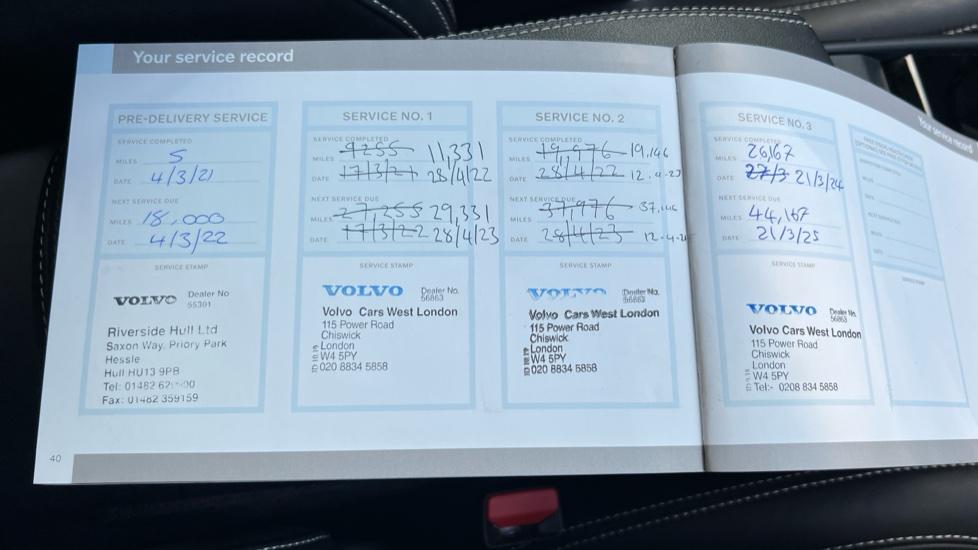 Your service record
PRE-DELIVERY SERVICE
SERVICE COMPLETED
MILES 5
DATE 4/3/21
NEXT SERVICE DUE
MILES 18,000
DATE 4/3/22
SERVICE STAMP
VOLVO Dealer No
55301
Riverside Hull Ltd
Saxon Way, Priory Park
Hessle
Hull HU13 9PB
Tel: 01482
Fax: 01482 359159
SERVICE NO. 1
SERVICE COMPLETED
MILES 9255 11,331
DATE 17/3/21 28/4/22
NEXT SERVICE DUE
MILES 27,255 29,331
DATE 17/3/22 28/4/23
SERVICE STAMP
VOLVO Dealer No.
56863
Volvo Cars West London
115 Power Road
Chiswick
London
W4 5PY
020 8834 5858
SERVICE NO. 2
SERVICE COMPLETED
MILES 19,976 19,146
DATE 28/4/22 12.4.23
NEXT SERVICE DUE
MILES 37,976 37,146
DATE 28/4/23
SERVICE STAMP
VOLVO Dealer No.
56863
Volvo Cars West London
115 Power Road
Chiswick
London
W4 5PY
020 8834 5858
SERVICE NO. 3
SERVICE COMPLETED
MILES 26,167
DATE 27/3 21/3/24
NEXT SERVICE DUE
MILES 44,167
DATE 21/3/25
SERVICE STAMP
VOLVO Dealer No.
56863
Volvo Cars West London
115 Power Road
Chiswick
London
W4 5PY
Tel:- 0208 834 5858
Your service record
MILES
DATE
NEXT SERVICE DUE
MILES
DATE
SERVICE STAMP
40